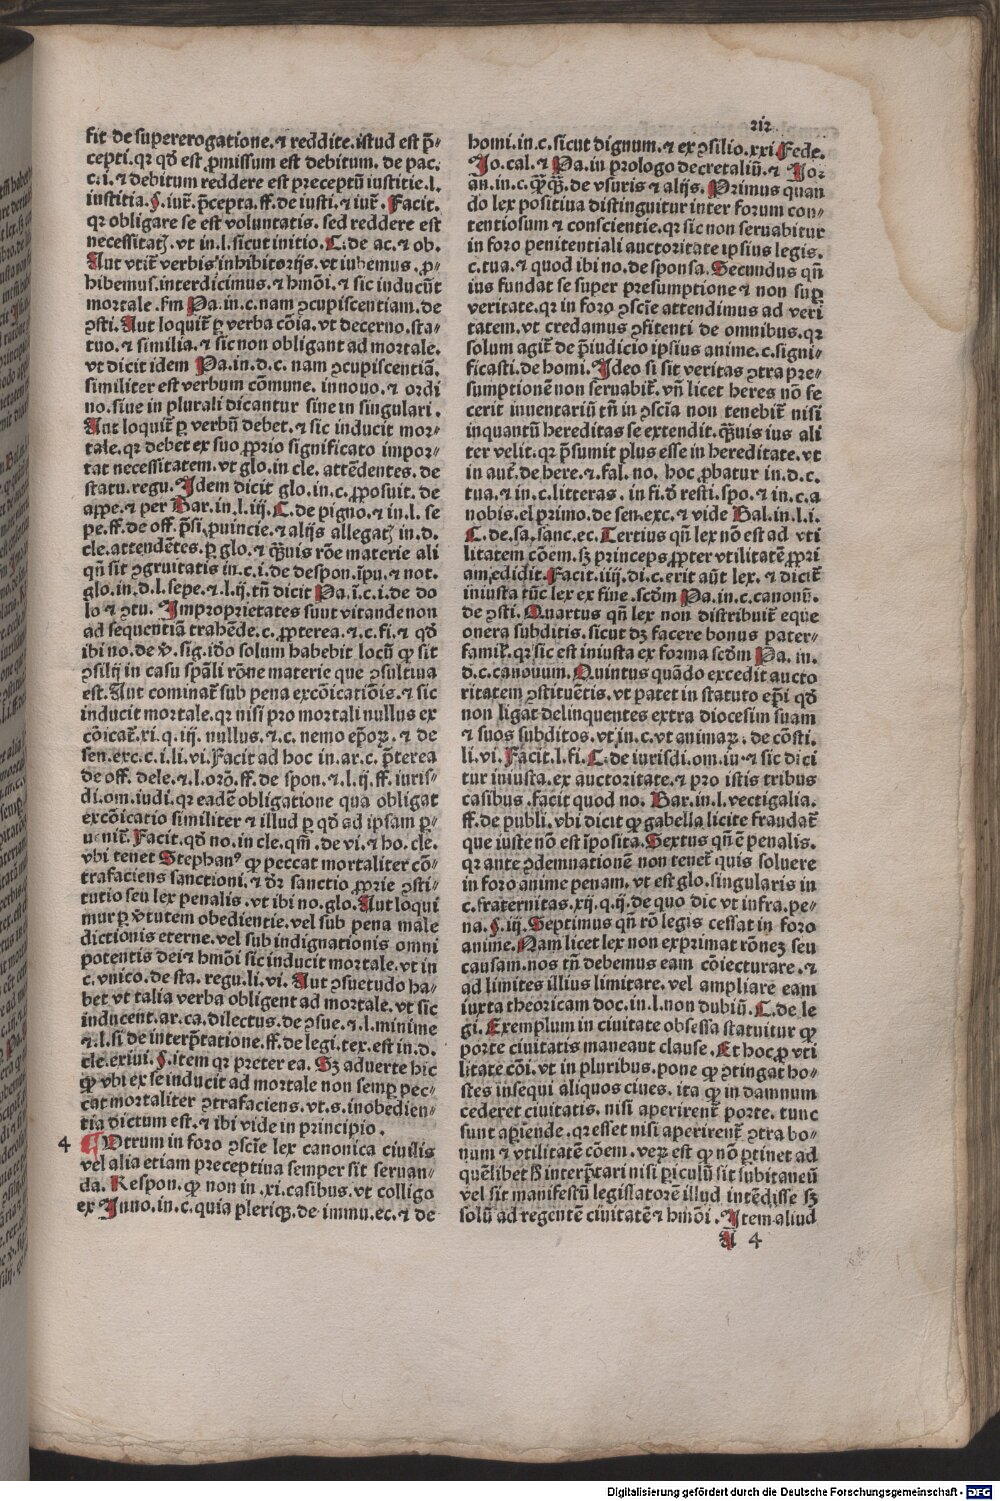 212
fit de supererogatione.⁊ reddite.istud est p̄-
cepti.qꝛ qd̄ est ꝓmissum est debitum. de pac.
c.i.⁊ debitum reddere est preceptū iustitie.l.
iustitia.§.iur̄.p̄cepta.ff.de iusti.⁊ iur̄. Facit.
qꝛ obligare se est voluntatis. sed reddere est
necessitatꝭ.vt in.l.sicut initio.C.de ac.⁊ ob.
Aut vtit̄ verbis inhibitorijs.vt iubemus.ꝓ-
hibemus.interdicimus.⁊ hmōi.⁊ sic inducūt
mortale.fm Pa.in.c.nam ꝯcupiscentiam.de
ꝯsti.Aut loquit̄ ꝑ verba cōia.vt decerno.sta-
tuo.⁊ similia.⁊ sic non obligant ad mortale.
vt dicit idem Pa.in.d.c. nam ꝯcupiscentiā.
similiter est verbum cōmune. innouo.⁊ ordi
no.siue in plurali dicantur siue in singulari.
Aut loquit̄ ꝑ verbū debet.⁊ sic inducit mor-
tale.qꝛ debet ex suo ꝓprio significato impor-
tat necessitatem.vt glo.in cle. attēdentes.de
statu.regu.Idem dicit glo.in.c.ꝓposuit. de
appe.⁊ per Bar.in.l.iij.C.de pigno.⁊ in.l. se
pe.ff.de off. p̄si.ꝓuincie.⁊ alijs allegatꝭ in.d.
cle.attendētes.ꝑ glo.⁊ qͣuis rōe materie ali
qn̄ sit ꝯgruitatis in.c.i.de despon.īpu.⁊ not.
glo.in.d.l.sepe.⁊.l.ij.tn̄ dicit Pa.ī.c.i.de do
lo ⁊ ꝯtu. Improprietates sunt vitande non
ad sequentiā trahēde.c.ꝓpterea.⁊.c.fi.⁊ qd̄
ibi no.de v̄.sig.idō solum habebit locū ꝙ sit
ꝯsilij in casu spāli rōne materie que ꝯsultiua
est.Aut cominat̄ sub pena excōicatiōis.⁊ sic
inducit mortale.qꝛ nisi pro mortali nullus ex
cōicat̄.xi.q.iij. nullus.⁊.c.nemo ep̄oꝝ.⁊ de
sen.exc.c.i.li.vi.Facit ad hoc in.ar.c. p̄terea
de off. dele.⁊.l.orō.ff.de spon.⁊.l.ij.ff. iuris-
di.om.iudi.qꝛ eadē obligatione qua obligat
excōicatio similiter ⁊ illud ꝑ qd̄ ad ipsam ꝑ-
uenit̄.Facit.qd̄ no.in cle.qm̄.de vi.⁊ ho.cle.
vbi tenet Stephanꝰ ꝙ peccat mortaliter cō-
trafaciens sanctioni.⁊ dr̄ sanctio ꝓprie ꝯsti-
tutio seu lex penalis.vt ibi no.glo.Aut loqui
mur ꝑ v̄tutem obedientie.vel sub pena male
dictionis eterne.vel sub indignationis omni
potentis dei ⁊ hmōi sic inducit mortale.vt in
c.vnico.de sta.regu.li.vi. Aut ꝯsuetudo ha-
bet vt talia verba obligent ad mortale.vt sic
inducent.ar.ca.dilectus.de ꝯsue.⁊.l.minime
⁊.l.si de interp̄tatione.ff.de legi.tex.est in.d.
cle.exiui.§.item qꝛ preter ea. Sꝫ aduerte hic
ꝙ vbi ex se inducit ad mortale non semꝑ pec-
cat mortaliter ꝯtrafaciens.vt.s.inobedien-
tia dictum est.⁊ ibi vide in principio.
4 Vtrum in foro ꝯscīe lex canonica ciuilis
vel alia etiam preceptiua semper sit seruan-
da. Respon.ꝙ non in.xi.casibus.vt colligo
ex Inno.in.c.quia pleriqꝫ.de immu.ec.⁊ de
homi.in.c.sicut dignum.⁊ ex ꝯsilio.xxi.Fede.
Jo.cal.⁊ Pa.in prologo decretaliū.⁊ Jo.
an.in.c.qͣqͣ.de vsuris ⁊ alijs.Primus quan
do lex positiua distinguitur inter forum con-
tentiosum ⁊ conscientie.qꝛ sic non seruabitur
in foro penitentiali auctoritate ipsius legis.
c.tua.⁊ quod ibi no.de sponsa.Secundus qn̄
ius fundat se super presumptione ⁊ non suꝑ
veritate.qꝛ in foro ꝯscīe attendimus ad veri
tatem.vt credamus ꝯfitenti de omnibus.qꝛ
solum agit̄ de p̄iudicio ipsius anime.c.signi-
ficasti.de homi. Ideo si sit veritas ꝯtra pre-
sumptionē non seruabit̄. vn̄ licet heres nō fe
cerit inuentariū tn̄ in ꝯscīa non tenebit̄ nisi
inquantū hereditas se extendit.qͣuis ius ali
ter velit.qꝛ p̄sumit plus esse in hereditate.vt
in aut̄.de here.⁊.fal.no. hoc ꝓbatur in.d.c.
tua.⁊ in.c.litteras. in fi.d̄ resti.spo.⁊ in.c.a
nobis.el primo.de sen.exc.⁊ vide Bal.in.l.i.
C.de.sa.sanc.ec.Tertius qn̄ lex nō est ad vti
litatem cōem.sꝫ princeps ꝓpter vtilitatē ꝓpri
am edidit.Facit.iiij.di.c.erit aūt lex.⁊ dicit̄
iniusta tūc lex ex fine.scd̄m Pa.in.c.canonū.
de ꝯsti. Quartus qn̄ lex non distribuit̄ eque
onera subditis.sicut dꝫ facere bonus pater-
famil̄.qꝛ sic est iniusta ex forma scd̄m Pa. in.
d.c.canonum.Quintus quādo excedit aucto
ritatem ꝯstituētis.vt patet in statuto ep̄i qd̄
non ligat delinquentes extra diocesim suam
⁊ suos subditos.vt in.c.vt animaꝝ.de cōsti.
li.vi. Facit.l.fi.C.de iurisdi.om.iu.⁊ sic dici
tur iniusta.ex auctoritate.⁊ pro istis tribus
casibus.facit quod no. Bar.in.l.vectigalia.
ff.de publi.vbi dicit ꝙ gabella licite fraudat̄
que iuste nō est īposita.Sextus qn̄ ē penalis.
qꝛ ante ꝯdemnationē non tenet̄ quis soluere
in foro anime penam.vt est glo.singularis in
c.fraternitas.xij.q.ij.de quo dic vt infra.pe-
na.§.iij.Septimus qn̄ rō legis cessat in foro
anime.Nam licet lex non exprimat rōneꝫ seu
causam.nos tn̄ debemus eam cōiecturare.⁊
ad limites illius limitare.vel ampliare eam
iuxta theoricam doc.in.l.non dubiū.C.de le
gi.Exemplum in ciuitate obsessa statuitur ꝙ
porte ciuitatis maneant clause.Et hoc ꝓ vti
litate cōi.vt in pluribus.pone ꝙ ꝯtingat ho-
stes insequi aliquos ciues. ita ꝙ in damnum
cederet ciuitatis. nisi aperirent̄ porte. tunc
sunt aꝑiende.qꝛ esset nisi aperirent̄ ꝯtra bo-
num ⁊ vtilitatē cōem.veꝝ est ꝙ nō ꝑtinet ad
quēlibet h̄ interp̄tari nisi ꝑiculū sit subitaneū
vel sit manifestū legislatorē illud intēdisse sꝫ
solū ad regentē ciuitatē ⁊ hmōi.Item aliud
A 4
Digitalisierung gefördert durch die Deutsche Forschungsgemeinschaft - DFG